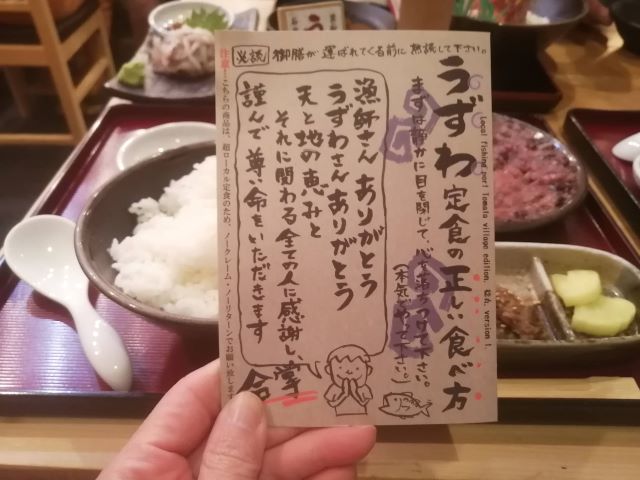 必読 御膳が運ばれてくる前に熟読して下さい。
うずわ定食の正しい食べ方
Local fishing port Tomato village edition.
version 1.
まずは静かに目を閉じて、心を落ちつけて下さい。
(本気でやって下さい。)
漁師さんありがとう
うずわさんありがとう
天と地の恵みと
それに関わる全ての人に感謝し、
謹んで尊い命をいただきます
合掌
注意…こちらの商品は、超ローカル定食のため、ノークレーム・ノーリターンでお願い致します